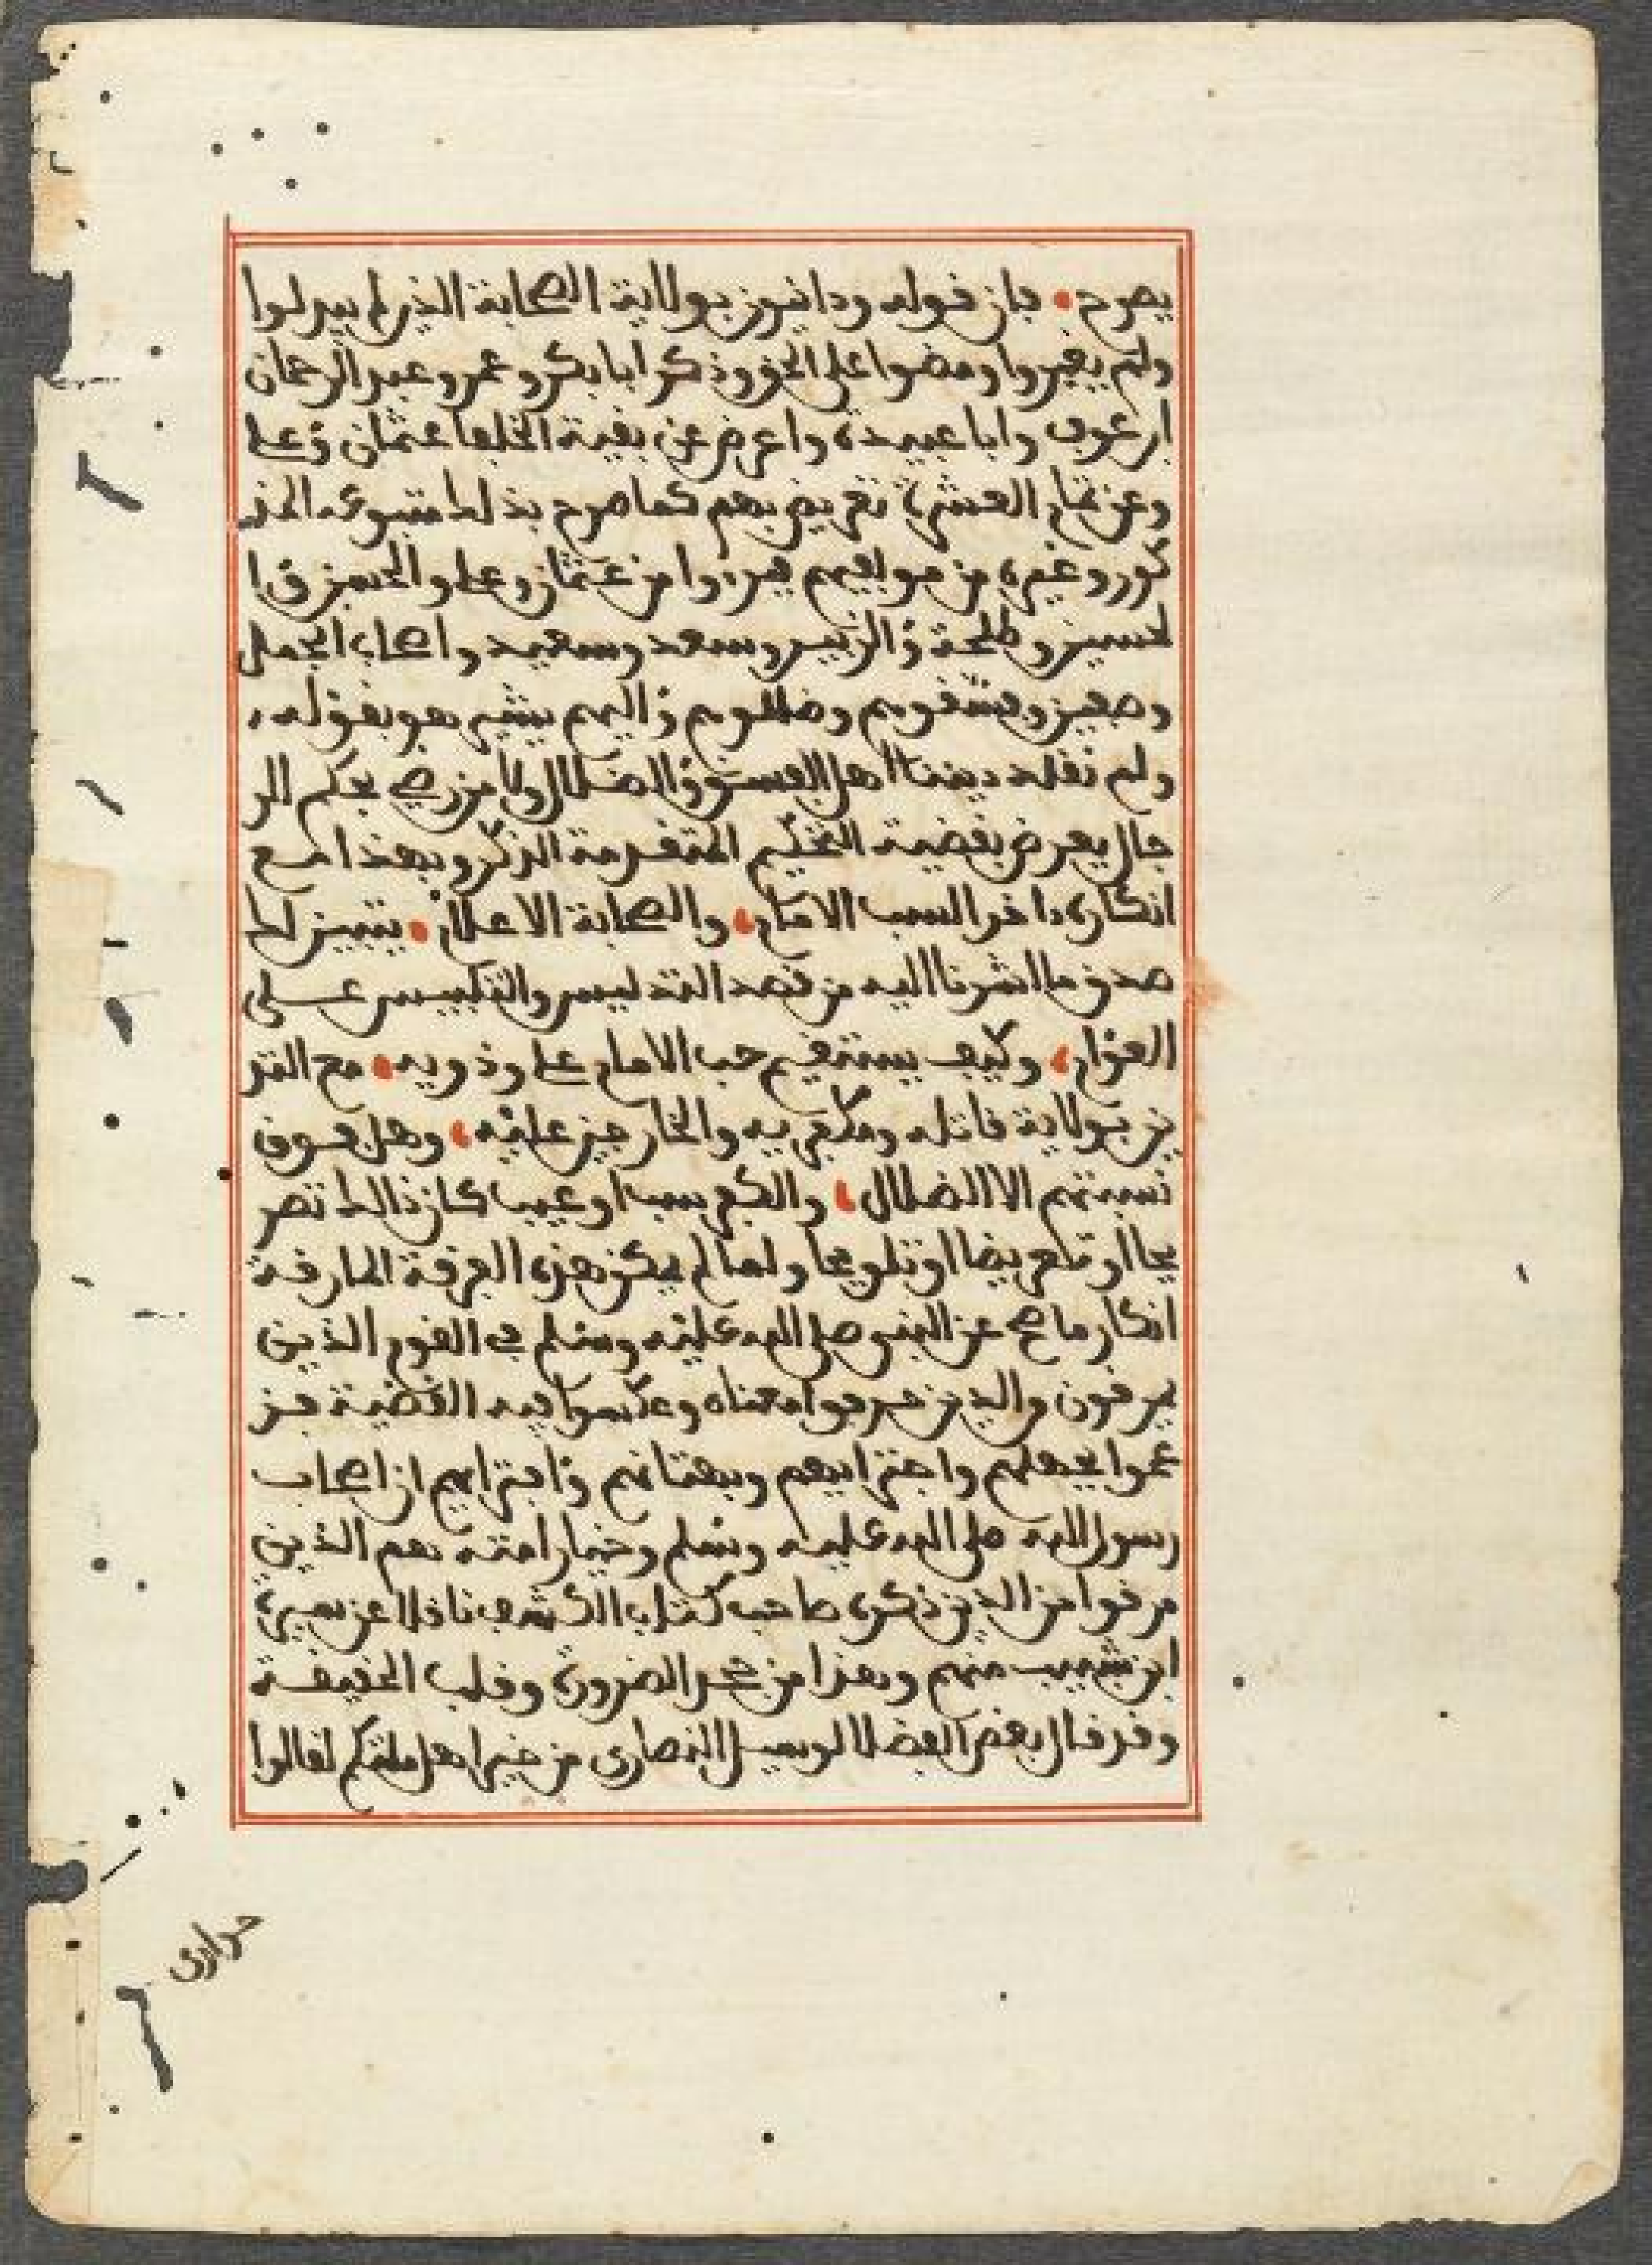 يصرح فان قوله ودانوز بولاية الصحابة الذين لم يبدلوا
ولم يغيروا ومضوا على الحق وذكر ابا بكر وعمر وعبد الرحمان
ابن عوف وابا عبيدة واعرض عن بقية الخلفا عثمان وعلي
وعن تمام العشرة تعريض بهم كما صرح بذلك متبوعه المذ
كور وغيره من مولفيهم فبرءوا من عثمان وعلي والحسن وا
لحسين وطلحة والزبير وسعد وسعيد واصحاب الجمل
وصفين وفسقوهم وضللوهم واليهم يشير هو بقوله
ولم نقلد ديننا اهل الفسق والضلال ولا من رضي بحكم الر
جال يعرض بقضية التحكيم المتقدمة الذكر وبهذا مع
انكاره داخر السب الامام والصحابة الاعلام يتبين لك
صدق ما اشرنا اليه من قصد التدليس والتلبيس على
العوام وكيف يستقيم حب الامام علي وذويه مع التد
ين بولاية قاتله ومكفريه والخارجين عليه وهل فوق
نسبتهم الا الضلال والكفر سب او عيب كان ذالك تصر
يحا او تعريضا او تلويحا ولما لم يمكن هذه الفرقة المارقة
انكار ما صح عن النبي صلى الله عليه وسلم في القوم الذين
يمرقون والدين حرفوا معناه وعكسوا فيه القضية فز
عموا بجهلهم واجترايهم وبهتانهم وافترايهم ان اصحاب
رسول الله صلى الله عليه وسلم وخيار امته هم الذين
مرقوا من الدين ذكره صاحب كتاب الكشف ناقلا عن بصيرة
ابن شبيب منهم وهذا من جحد الضرورة وقلب الحقيقة
وقد قال بعض الفضلا لو سيل النصارى من خير اهل ملتكم لقالوا
حواري